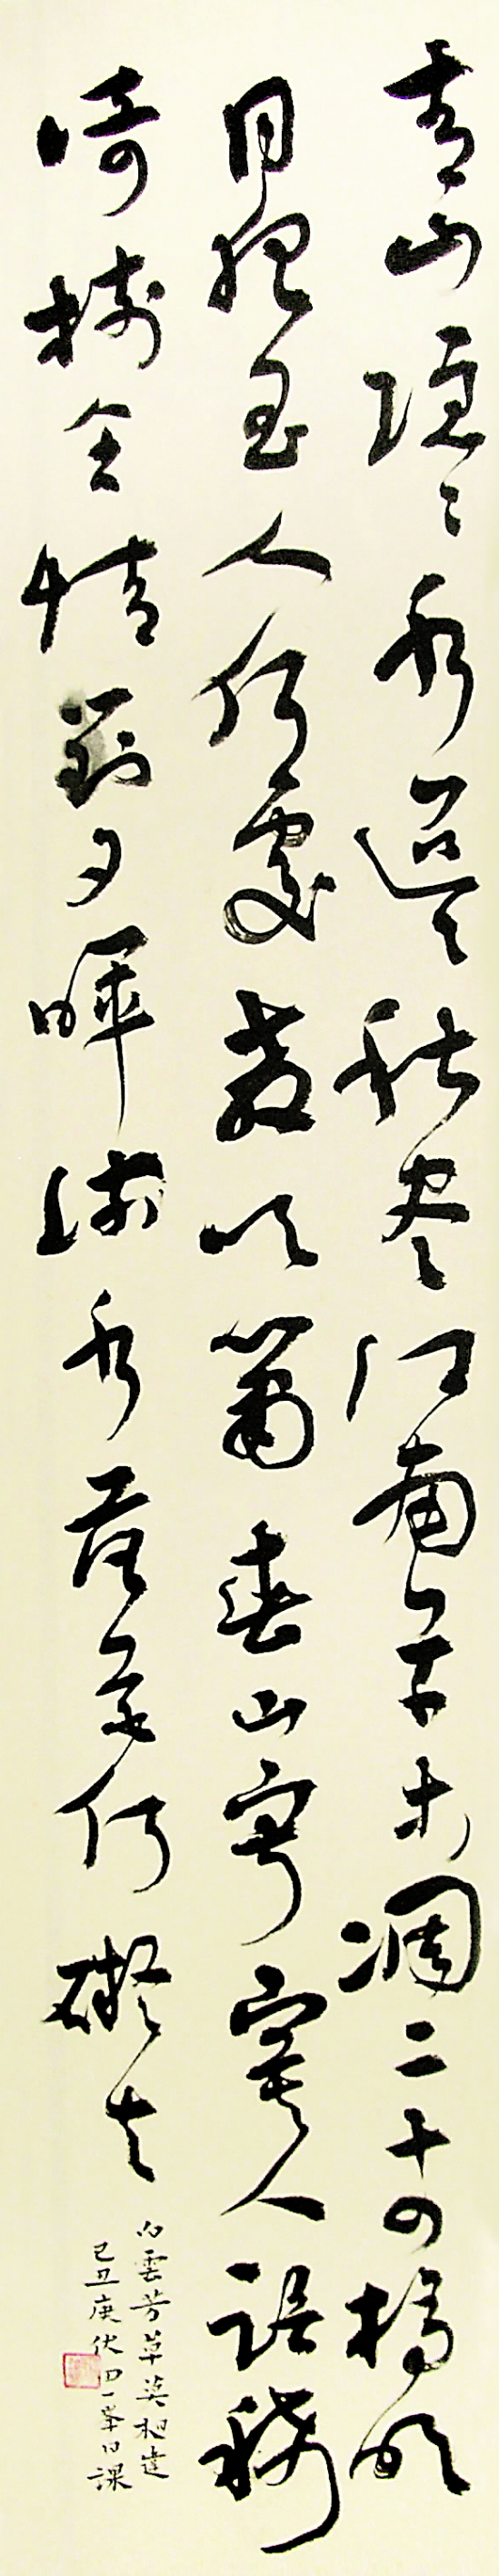 青山隱隱水迢迢秋盡江南草未凋二十四橋明
月夜玉人何處教吹簫春山寂寞人語稀
倚樹含情對夕暉流水落花何礙去
白雲芳草莫相違
己丑庚伏四一峯日課